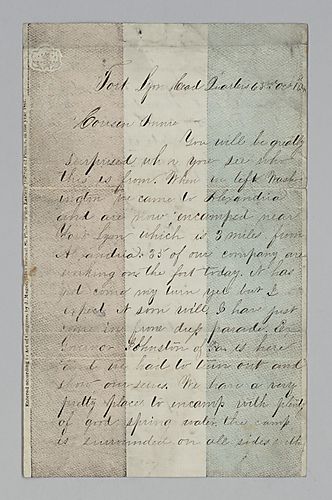 Fort Lyon Head Quarters 63d Oct
Cousin Annie
You will be greatly
surprised when you see who
this is from. When we left Wash-
ington we came to Alexandria
and are now incamped near
Fort Lyon which is 3 miles from
Alexandria. 35 of our company are
working on the fort today. it has
not come my turn yet but I
expect it soon will. I have just
come in from dress parade. Ex
Govenor Johnston of Pa. is here
and we had to turn out and
show ourselves. We have a very
pretty place to encamp with plenty
of good spring water the camp
is surrounded on all sides with
Entered according to Act of Congress, by J. Mag